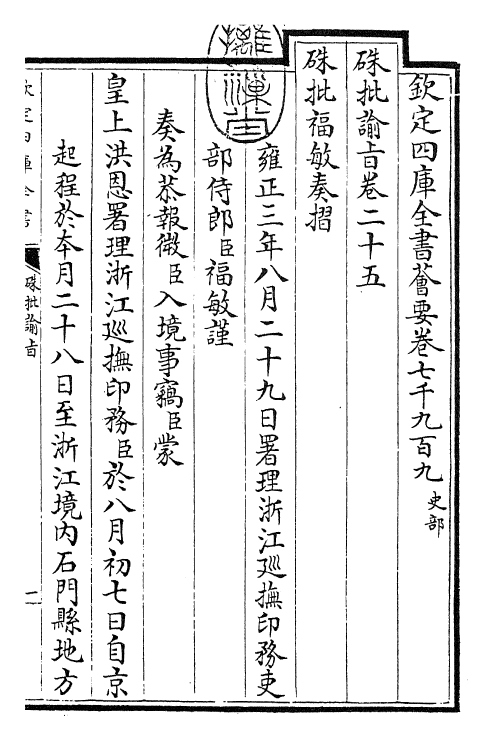 欽定四庫全書薈要卷七千九百九 史部
硃批諭旨卷二十五
硃批福敏奏摺
雍正三年八月二十九日署理浙江廵撫印務吏
部侍郎臣福敏謹
奏為恭報微臣入境事竊臣蒙
皇上洪恩署理浙江廵撫印務臣於八月初七日自京
起程於本月二十八日至浙江境内石門縣地方
欽定四庫全書
硃批諭旨